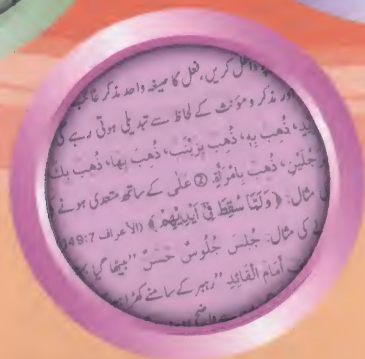 داخل کریں، فعل کا صیغہ واحد مذکر غائب
اور مذکر و مؤنث کے لحاظ سے تبدیلی ہوتی رہے گی
ذُهِبَ بِهِ، ذُهِبَ بِزَيْنَبَ، ذُهِبَ بِهَا، ذُهِبَ بِكَ
رَجُلَيْنِ، ذُهِبَ بِامْرَأَةٍ ② عَلٰی کے ساتھ متعدی ہونے کی
مثال: ﴿وَلَمَّا سُقِطَ فِيْٓ اَيْدِيْهِمْ﴾ (الأعراف 7:149)
کی مثال: جُلِسَ جُلُوسٌ حَسَنٌ ”بیٹھا گیا
أَمَامَ الْقَائِدِ ”رہبر کے سامنے کھڑا